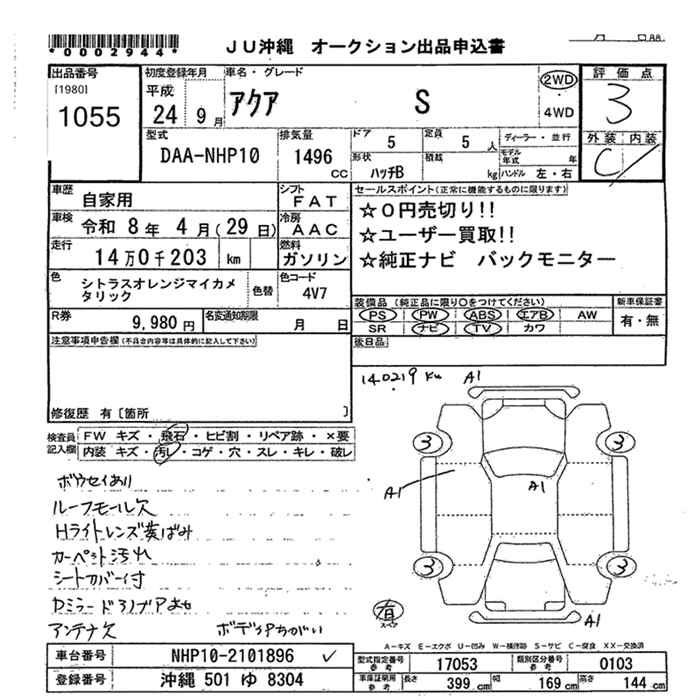 *0002944*
JU沖縄 オークション出品申込書
月 日
出品番号 [1980] 1055
初度登録年月 平成 24 9 月
車名・グレード アクア S
2WD 4WD
評価点 3
外装 内装 C
型式 DAA-NHP10
排気量 1496 CC
ドア 5 定員 5 人
形状 ハッチB 積載 kg
ディーラー・並行
モデル年式 年
ハンドル 左・右
車歴 自家用
シフト FAT
車検 令和 8 年 4 月 (29 日)
冷房 AAC
走行 14万0千203 km
燃料 ガソリン
色 シトラスオレンジマイカメタリック
色替
色コード 4V7
R券 9,980 円
名変通知期限 月 日
セールスポイント(正常に機能するものに限ります)
☆0円売切り!!
☆ユーザー買取!!
☆純正ナビ バックモニター
装備品 (純正品に限り○をつけてください)
PS PW ABS エアB AW
SR ナビ TV カワ
新車保証書 有・無
後日品
注意事項申告欄(不具合内容等は具体的に記入して下さい)
修復歴 有〔箇所 〕
検査員記入欄
FW キズ・飛石・ヒビ割・リペア跡・×要
内装 キズ・汚レ・コゲ・穴・スレ・キレ・破レ
ボウセイあり
ルーフモール欠
Hライトレンズ黄ばみ
カーペット汚れ
シートカバー付
Dミラー
アンテナ欠 ボデ
140219 Km A1
3 3
A1 A1
3 3
有 スペア
A1
A-キズ E-エクボ U-凹み W-補修跡 S-サビ C-腐食 XX-交換済
車台番号 NHP10-2101896 ✓
登録番号 沖縄 501 ゆ 8304
型式指定番号 参考 17053
類別区分番号 参考 0103
車庫証明用 参考 長さ 399 cm 幅 169 cm 高さ 144 cm